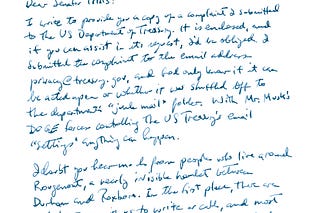 Dear Senator Tillis:
I write to provide you a copy of a complaint I submitted
to the US Department of Treasury. It is enclosed, and
if you can assist in its request, I'd be obliged. I
submitted the complaint to the email address
privacy@treasury.gov, and God only knows if it can
be acted upon or whether it was shuffled off to
the department's "junk mail" folder. With Mr. Musk's
DOGE forces controlling the US Treasury's email
"settings" anything can happen.
I doubt you hear much from people who live around
Rougemont, a nearly invisible hamlet between
Durham and Roxboro. In the first place, there are
to write or call, and most